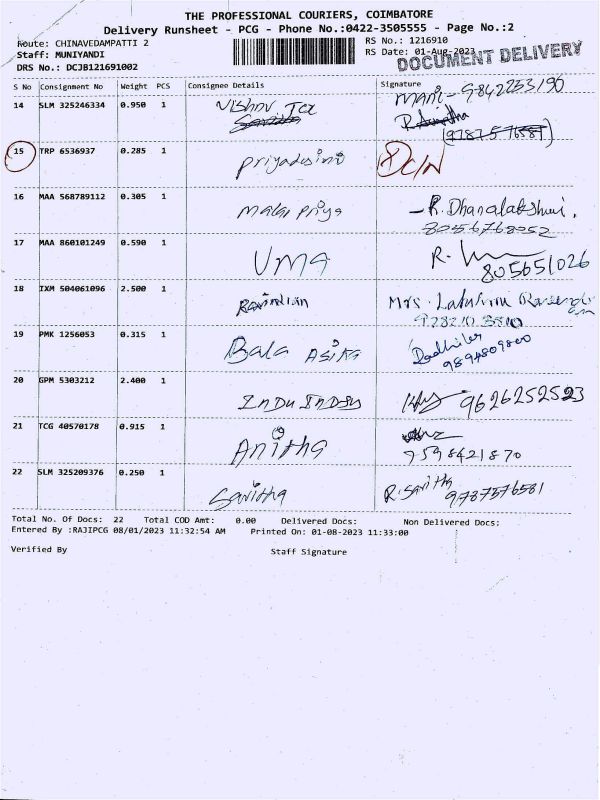 THE PROFESSIONAL COURIERS, COIMBATORE
Delivery Runsheet - PCG - Phone No.:0422-3505555 - Page No.:2
Route: CHINAVEDAMPATTI 2
RS No.: 1216910
Staff: MUNIYANDI
RS Date: 01-Aug-2023
DOCUMENT DELIVERY
DRS No.: DCJB121691002
S No Consignment No Weight PCS Consignee Details Signature
14 SLM 325246334 0.950 1 Vishnu Tex Mani - 9842253190
Savitha R.
(9787576581)
15 TRP 6536937 0.285 1 Priyadesini DC/N
16 MAA 568789112 0.305 1 Malar Priya - R. Dhanalakshmi,
8056768952
17 MAA 860101249 0.590 1 UMA R.
805651026
18 IXM 504061096 2.500 1 Mrs.
19 PMK 1256053 0.315 1 Bala Asika
9894809800
20 GPM 5303212 2.400 1 Indu Indsy 9626252523
21 TCG 40570178 0.915 1 Anitha
9598421870
22 SLM 325209376 0.250 1 Savitha R. Savitha
9787576581
Total No. Of Docs: 22 Total COD Amt: 0.00 Delivered Docs: Non Delivered Docs:
Entered By :RAJIPCG 08/01/2023 11:32:54 AM Printed On: 01-08-2023 11:33:00
Verified By Staff Signature